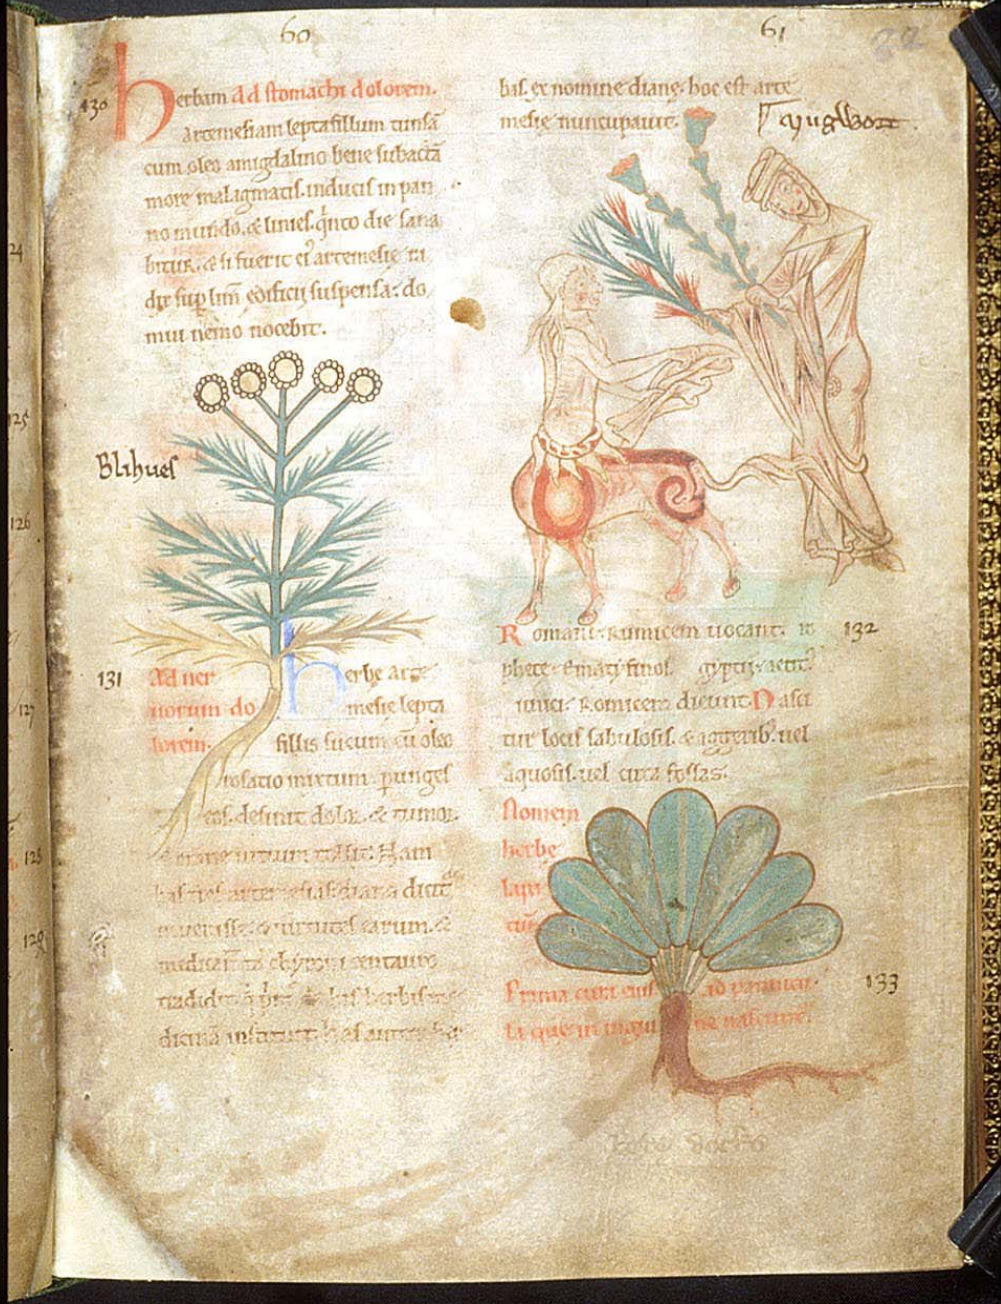 60
61
22
130
herbam Ad stomachi dolorem.
Artemesiam leptafillum tunsā
cum oleo amigdalino bene subactā
more malagmatis. inducis in pan
no mundo, & linies. q̇nto die sana
bitur. & si fuerit ei' artemesie ra
dix sup lim̄ edificii suspensa: do
mui nemo nocebit.
Blihuel
131
Ad ner
uorum do
lorem.
herbe arte
mesie lepta
fillis sucum cū oleo
rosacio mixtum punges
eos. desinit dolor. & tumor.
& omne uitium tollit. Nam
has tres artemesias diana dicit
inuenisse. & uirtutes earum. &
medicam̄ta chyroni centauro
tradidit. q̇ p̄m̄ de his herbis me
dicinā instituit. has autem her
bas. ex nomine diane. hoc est arte
mesie nuncupauit.
Mugwort
Romani. Rumicem uocant.
132
egyptii
Romicem dicunt. Nasci
tur locis sabulosis. & aggerib. uel
aquosis. uel circa fossas.
Nomen
herbe
lapa
cīū
Prima cura eius ad panucu
la que in ingui ne nascitur.
133
24
125
126
127
128
129